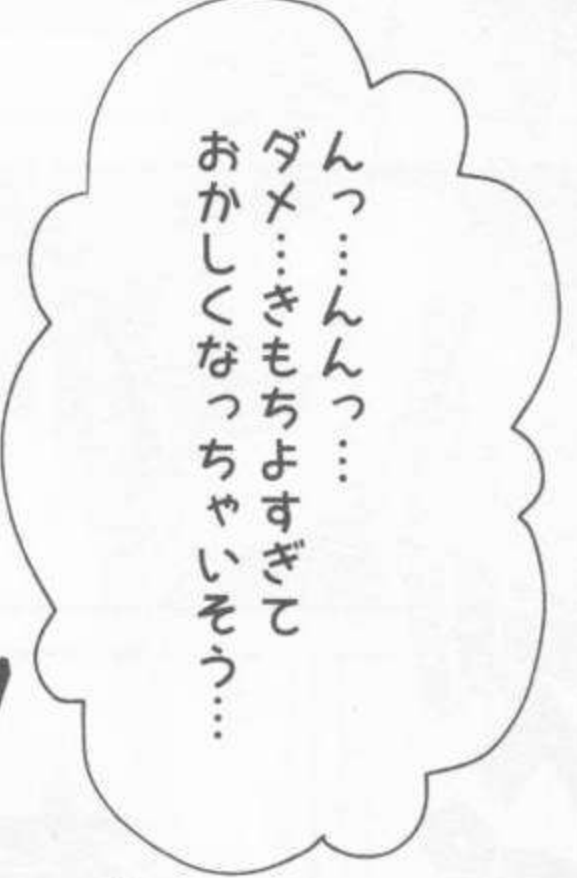 んっ…んんっ…
ダメ…きもちよすぎて
おかしくなっちゃいそう…